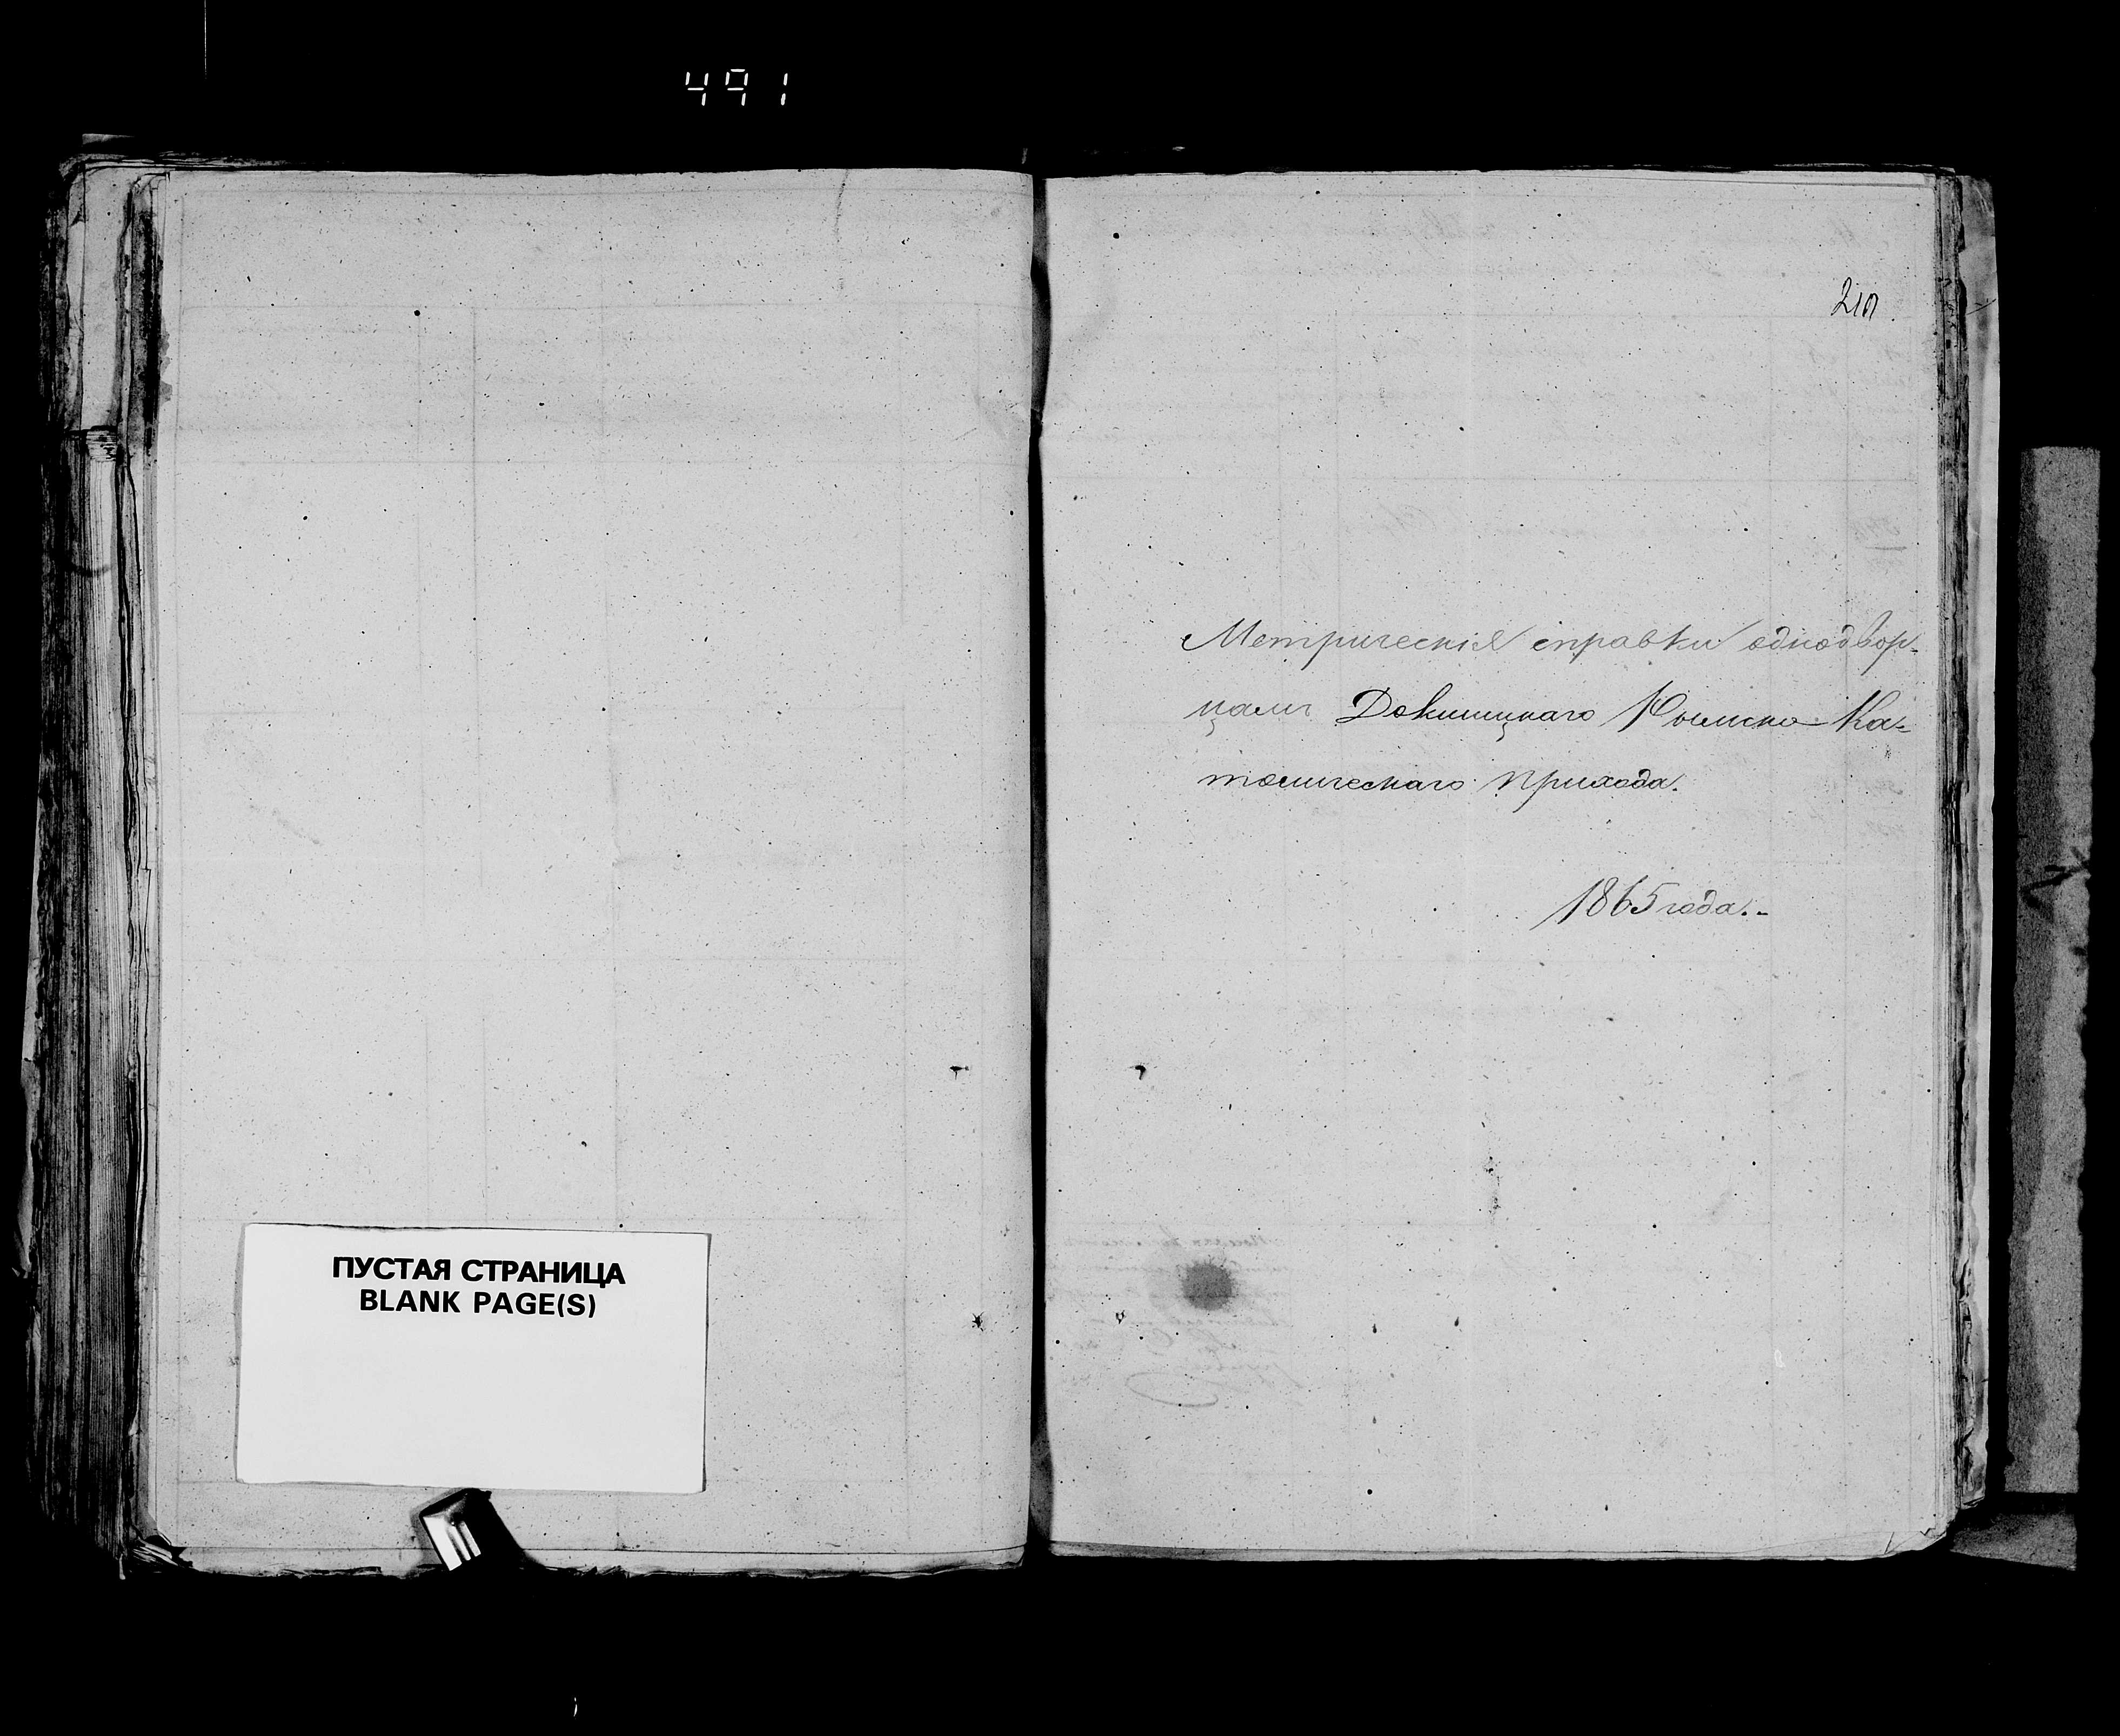 491
ПУСТАЯ СТРАНИЦА
BLANK PAGE(S)
Метрическія справки однодвор-
цамъ Докшицкаго Римско-Ка-
толическаго прихода.
1865 года.-